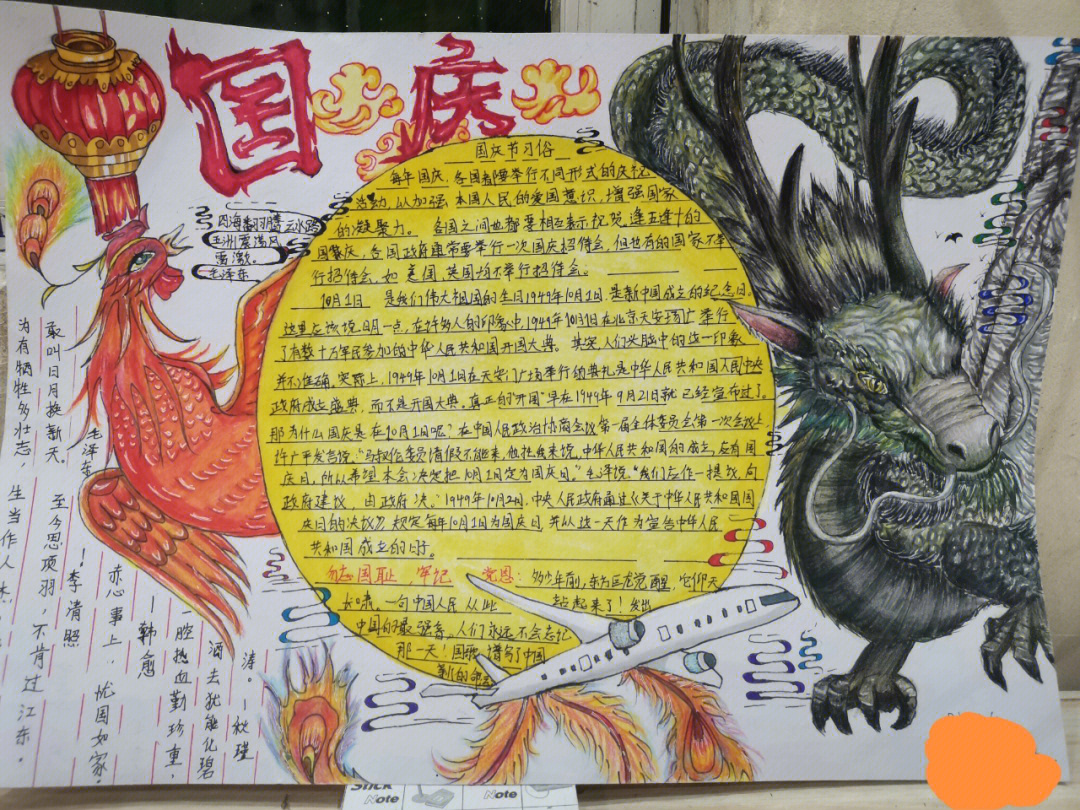 国庆
国庆节习俗
每年国庆,各国都要举行不同形式的庆祝
活动,以加强本国人民的爱国意识,增强国家
的凝聚力。各国之间也都要相互表示祝贺。逢五逢十的
国黎庆,各国政府通常要举行一次国庆招待会,但也有的国家不举
行招待会,如美国、英国均不举行招待会。
10月1日,是我们伟大祖国的生日1949年10月1日,是新中国成立的纪念日。
这里应该说明一点,在许多人的印象中,1949年10月1日在北京天安门广举行
了有数十万军民参加的中华人民共和国开国大典。其实,人们头脑中的这一印象
并不准确。实际上,1949年10月1日在天安门广场举行的典礼是中华人民共和国人民中央
政府成立盛典,而不是开国大典。真正的"开国"早在1949年9月21日就已经宣布过了。
那为什么国庆是在10月1日呢?在中国人民政治协商会议第一届全体委员会第一次会议上,
许广平发言说,"马叙伦委员请假不能来,他托我来说,中华人民共和国的成立,应有国
庆日,所以希望本会决定把10月1日定为国庆日。"毛泽说,"我们应作一提议,向
政府建议,由政府决。"1949年10月2日,中央人民政府通过《关于中华人民共和国国
庆日的决议》规定每年10月1日为国庆日,并从这一天作为宣告中华人民
共和国成立的日子。
勿忘国耻 牢记 党恩:多少年前,东方巨龙觉醒,它仰天
长啸,一句中国人民从此 站起来了!发出
中国的最强音,人们永远不会忘记
那一天!国歌谱写了中国
新的命
四海翻腾云水
亚洲震荡风
雷激。
毛泽东
为有牺牲多壮志,
敢叫日月换新天。
毛泽东
生当作人杰,
至今思项羽,不肯过江东。
!李清照
赤心事上,忧国如家。
—韩愈
一腔热血勤珍重,
洒去犹能化碧
涛。—秋瑾
Stick
Note
Note